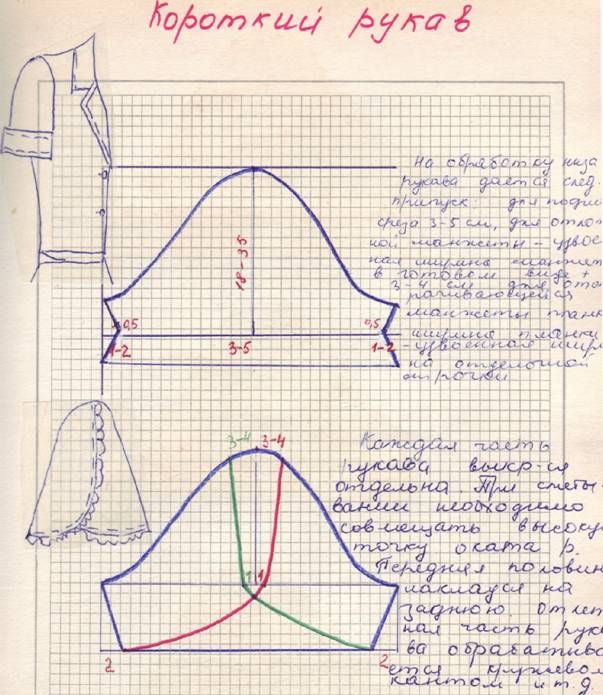 Короткий рукав
На обработку низа
рукава дается след.
припуск: для подши
среза 3-5 см, для отлож
ной манжеты - удвоен
ная ширина манжет
в готовом виде +
3-4 см для отво
рачивающейся
манжеты планк
ширина планки
- удвоенная шир
на отделочной
строчки
18-35
0,5
0,5
1-2
3-5
1-2
Каждая часть
рукава выкр-ся
отдельна При смёты-
вании необходимо
совмещать высокую
точку оката р.
Передняя половин
накладся на
заднюю
ная часть рука
ва обрабатыва
ется кружевом
кантом и т.д.
3-4
3-4
1
1
2
2